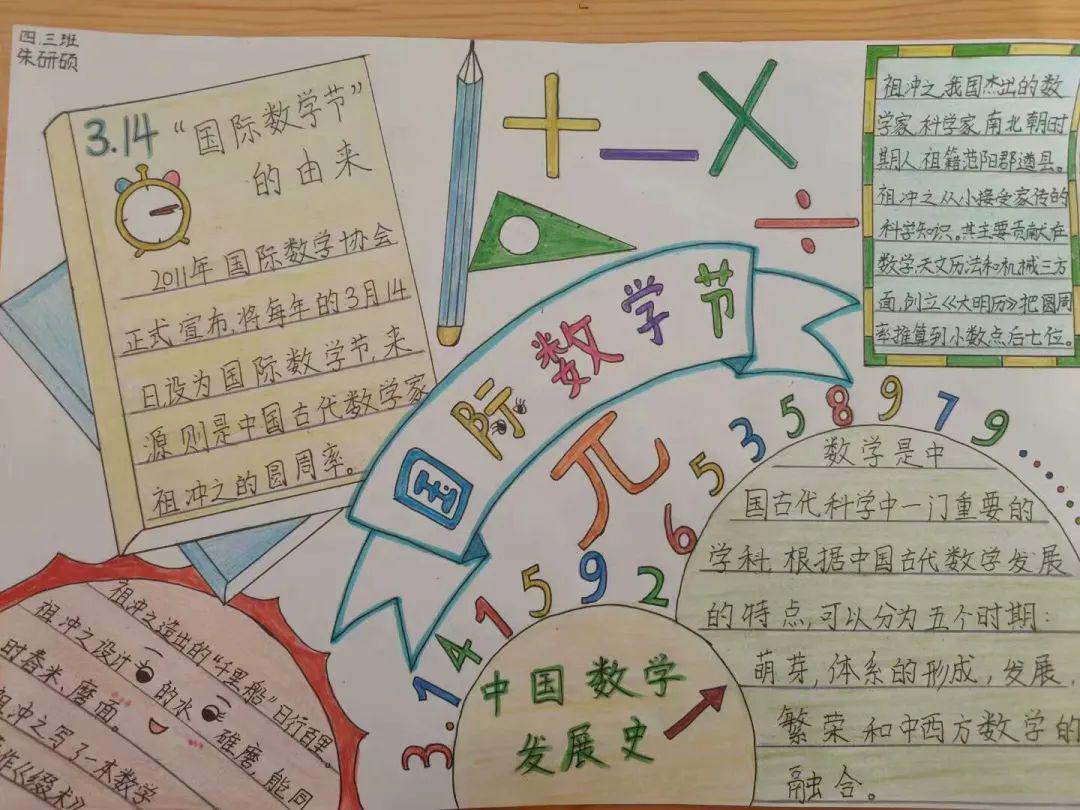 四.三班
朱研硕
3.14 “国际数学节”
的由来
2011年国际数学协会
正式宣布,将每年的3月14
日设为国际数学节,来
源则是中国古代数学家
祖冲之的圆周率。
+ - × ÷
国际数学节
祖冲之,我国杰出的数
学家、科学家,南北朝时
期人,祖籍范阳郡遒县。
祖冲之从小接受家传的
科学知识。其主要贡献在
数学、天文历法和机械三方
面,创立《大明历》把圆周
率推算到小数点后七位。
兀
3.14159265358979......
数学是中
国古代科学中一门重要的
学科,根据中国古代数学发展
的特点,可以分为五个时期:
萌芽,体系的形成,发展,
繁荣和中西方数学的
融合。
中国数学
发展史
祖冲之造出的“千里船”日行百里。
祖冲之设计的水碓磨,能同
时舂米、磨面。
祖冲之写了一本数学
作《缀术》